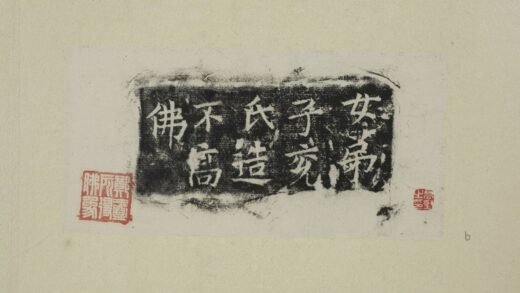 女弟
子亥
氏造
不高
佛
b